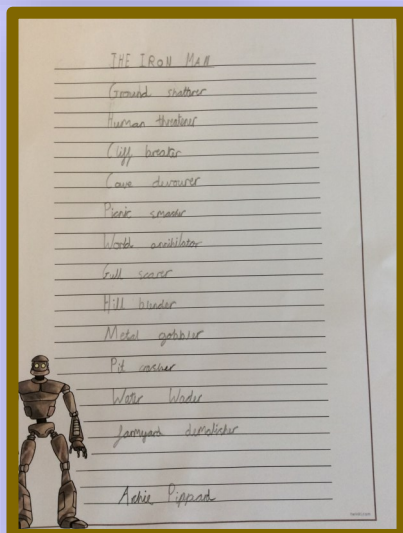 THE IRON MAN
Ground shatterer
Human threatener
Cliff breaker
Cave devourer
Picnic smasher
World annihilator
Gull scarer
Hill
Metal gobbler
Pit
Water Wader
farmyard demolisher
Archie Pippard